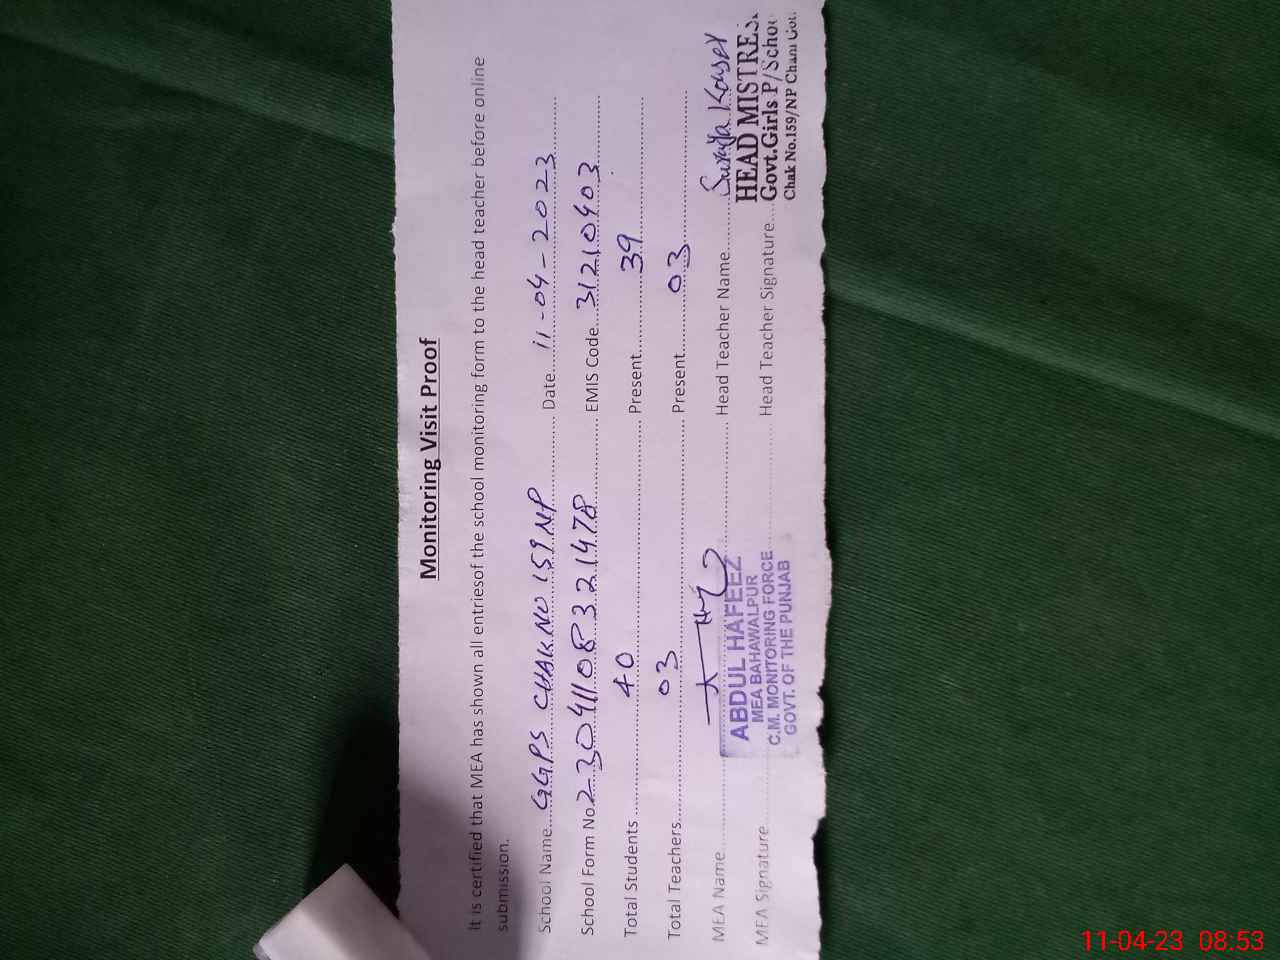 Monitoring Visit Proof
It is certified that MEA has shown all entriesof the school monitoring form to the head teacher before online
submission.
School Name....GGPS CHAK NO 159 NP........ Date....11-04-2023........
School Form No.23041108321478........ EMIS Code....31210403........
Total Students ........40........ Present........39........
Total Teachers........03........ Present........03........
MEA Name................ Head Teacher Name........Surayya Kousar
MEA Signature................ Head Teacher Signature........
ABDUL HAFEEZ
MEA BAHAWALPUR
C.M. MONITORING FORCE
GOVT. OF THE PUNJAB
HEAD MISTRES.
Govt.Girls P/School
Chak No.159/NP Chani Got.
11-04-23 08:53